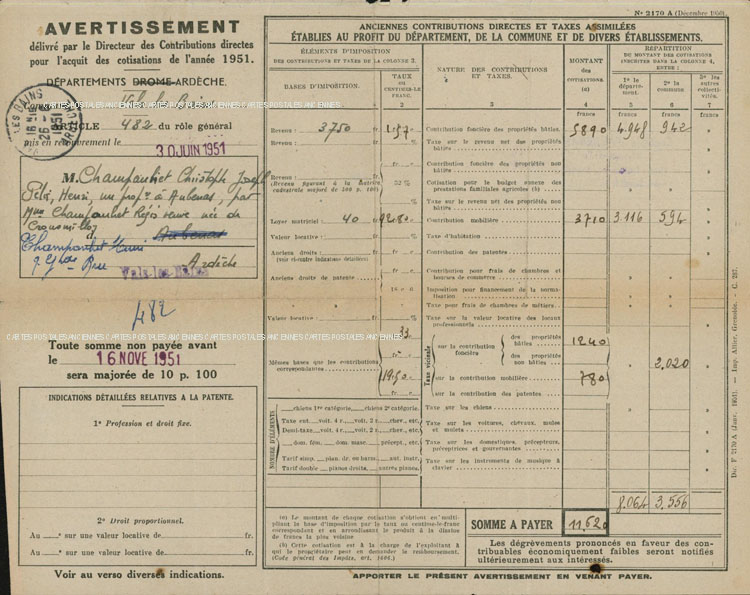 AVERTISSEMENT
délivré par le Directeur des Contributions directes
pour l'acquit des cotisations de l'année 1951.
DÉPARTEMENTS DROME-ARDÈCHE.
ARTICLE 482 du rôle général
pis en recouvrement le
30 JUIN 1951
LES BAINS
1951
M. Champanhet Christophe Joseph
Félix, Henri, un prof à Aubenas, par
Mme Champanhet Régis veuve née de
Aubenas
Champanhet Henri
Ardèche
Vals-les-Bains
482
Toute somme non payée avant
le 16 NOVE 1951
sera majorée de 10 p. 100
INDICATIONS DÉTAILLÉES RELATIVES A LA PATENTE.
1° Profession et droit fixe.
2° Droit proportionnel.
Au ° sur une valeur locative de fr.
Au ° sur une valeur locative de fr.
Voir au verso diverses indications.
N° 2170 A (Décembre 1950).
ANCIENNES CONTRIBUTIONS DIRECTES ET TAXES ASSIMILÉES
ÉTABLIES AU PROFIT DU DÉPARTEMENT, DE LA COMMUNE ET DE DIVERS ÉTABLISSEMENTS.
ÉLÉMENTS D'IMPOSITION
DES CONTRIBUTIONS ET TAXES DE LA COLONNE 3.
BASES D'IMPOSITION.
TAUX
EN
CENTIME-LE-
FRANC.
2
NATURE DES CONTRIBUTIONS
ET TAXES.
3
MONTANT
DES
COTISATIONS.
(a)
4
RÉPARTITION
DU MONTANT DES COTISATIONS
INSCRITES DANS LA COLONNE 4,
ENTRE :
1° le
départe-
ment.
5
2° la
commune
6
3° les
autres
collecti-
vités.
7
francs francs francs francs
Revenu : 3750 fr. 1.57 Contribution foncière des propriétés bâties. 5890 4.948 942 "
Revenu : % Taxe sur le revenu net des propriétés
bâties.
Revenu : fr. Contribution foncière des propriétés non
bâties
(Revenu figurant à la matrice
cadastrale majoré de 100 p. 100)
52 % Cotisation pour le budget annexe des
prestations familiales agricoles (b)
Taxe sur le revenu net des propriétés
non bâties.
Loyer matriciel : 40 fr. 92.80 Contribution mobilière 3710 3.116 594 "
Valeur locative : % Taxe d'habitation
Anciens droits : fr. Contribution des patentes
(Voir ci-contre indications détaillées)
Contribution pour frais de chambres et
bourses de commerce
Anciens droits de patente
Imposition pour financement de la norma-
lisation
Taxe pour frais de chambre de métiers.
Valeur locative : % Taxe sur la valeur locative des locaux
professionnels
Mêmes bases que les contributions
correspondantes
33
19.50
Taxe vicinale
sur la contribution
foncière
des propriétés
bâties 1240
des propriétés
non bâties 2.020
sur la contribution mobilière 780
sur la contribution des patentes
NOMBRE D'ÉLÉMENTS
chiens 1re catégorie, chiens 2e catégorie. Taxe sur les chiens
Taxe ent. voit. 4 r. voit. 2 r. chev., etc.
Demi-taxe voit. 4 r. voit. 2 r. chev., etc.
Taxe sur les voitures, chevaux, mules
et mulets
dom. fém. dom. masc. précept., etc.
Taxe sur les domestiques, précepteurs,
préceptrices et gouvernantes
Tarif simp. plan. dr. en barr. aut. instr.
Tarif double pianos droits, autres pianos.
Taxe sur les instruments de musique à
clavier
8.064 3.556
(a) Le montant de chaque cotisation s'obtient en multi-
pliant la base d'imposition par le taux au centime-le-franc
correspondant et en arrondissant le produit à la dizaine
de francs la plus voisine
(b) Cette cotisation est à la charge de l'exploitant à
qui le propriétaire peut en demander le remboursement.
(Code général des Impôts, art. 1606.)
SOMME A PAYER 11,620
Les dégrèvements prononcés en faveur des con-
tribuables économiquement faibles seront notifiés
ultérieurement aux intéressés.
APPORTER LE PRÉSENT AVERTISSEMENT EN VENANT PAYER.
Doc. F 2170 A (Janv. 1951). — Imp. Allier, Grenoble. - C. 207.
CARTES POSTALES ANCIENNES CARTES POSTALES ANCIENNES CARTES POSTALES ANCIENNES
CARTES POSTALES ANCIENNES CARTES POSTALES ANCIENNES CARTES POSTALES ANCIENNES